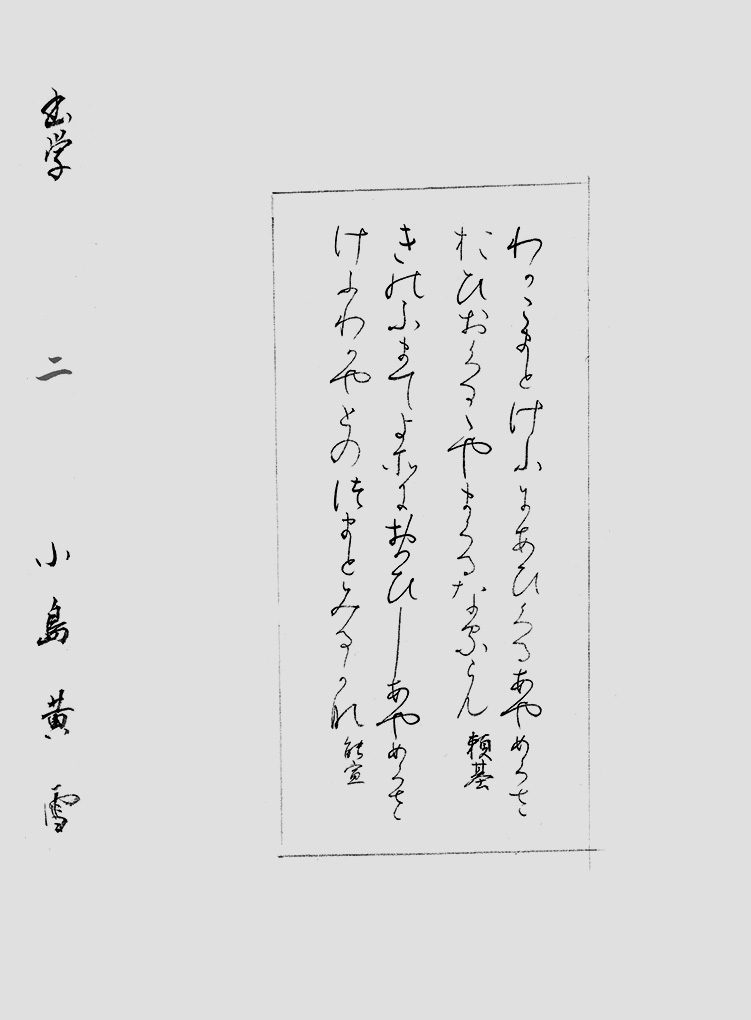 わかこまとけふにあひくるあやめくさ
おひおくるゝやまくるなるらん 頼基
きのふまてよそにおもひしあやめくさ
けふわかやとのつまとみるかな 能宣
学 二 小島黄雪